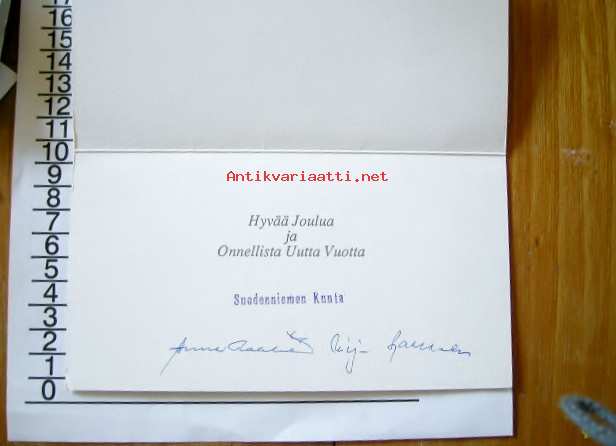 17
16
15
14
13
12
11
10
9
8
7
6
5
4
3
2
1
0
Antikvariaatti.net
Hyvää Joulua
ja
Onnellista Uutta Vuotta
Suodenniemen Kunta